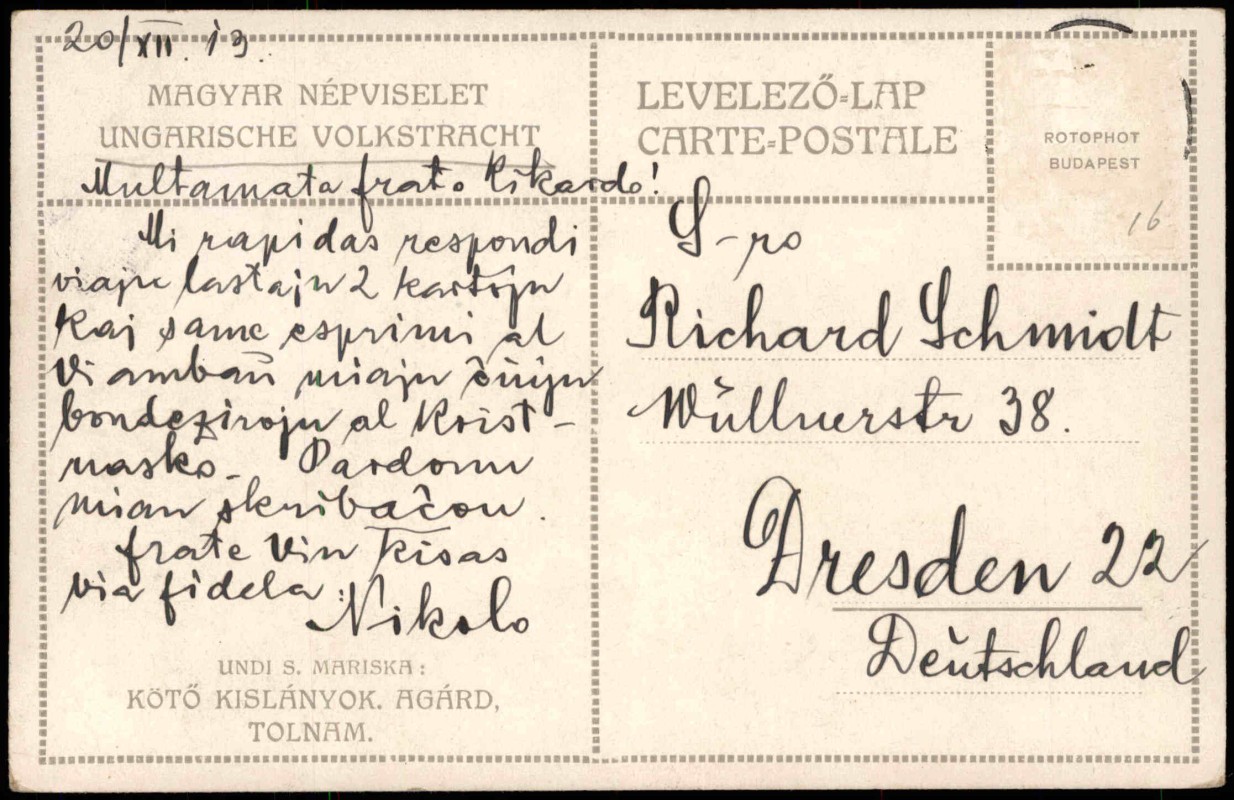 20/XII. 13.
MAGYAR NÉPVISELET
UNGARISCHE VOLKSTRACHT
Multamata frato Rikardo!
Mi rapidas respondi
viajn lastajn 2 kartojn
kaj same esprimi al
Vi ambaŭ miajn ĉiujn
bondezirojn al Krist-
nasko. Pardonu
mian skribaĉon.
frate Vin kisas
via fidela:
Nikolo
UNDI S. MARISKA:
KÖTŐ KISLÁNYOK. AGÁRD,
TOLNAM.
LEVELEZŐ-LAP
CARTE-POSTALE
ROTOPHOT
BUDAPEST
16
S-ro
Richard Schmidt
Wüllnerstr 38.
Dresden 22
Deutschland